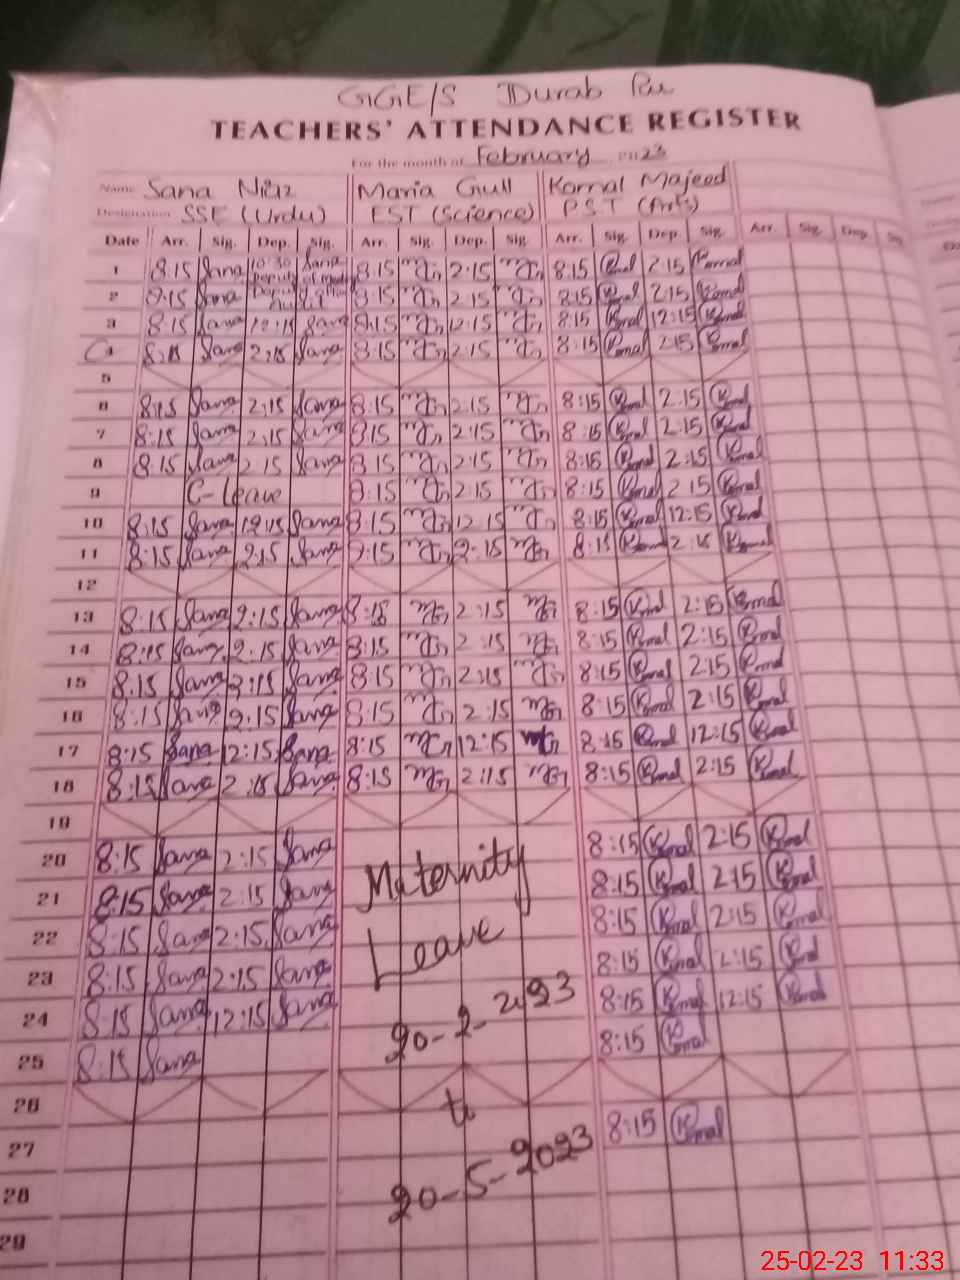 GGE/S Durab Pur
TEACHERS' ATTENDANCE REGISTER
For the month of February 2023
Name Sana Niaz Maria Gull Komal Majeed
Designation SSE (Urdu) EST (Science) P.S.T (Arts)
Date Arr. Sig. Dep. Sig. Arr. Sig. Dep. Sig. Arr. Sig. Dep. Sig. Arr. Sig. Dep. Sig.
1 8:15 Sana 10:30 Sana 8:15 2:15 8:15 Komal 2:15 Komal
2 8:15 Sana 8:15 2:15 8:15 Komal 2:15 Komal
3 8:15 Sana 12:15 Sana 8:15 12:15 8:15 Komal 12:15 Komal
4 8:15 Sana 2:15 Sana 8:15 2:15 8:15 Komal 2:15 Komal
5
6 8:15 Sana 2:15 Sana 8:15 2:15 8:15 Komal 2:15 Komal
7 8:15 Sana 2:15 Sana 8:15 2:15 8:15 Komal 2:15 Komal
8 8:15 Sana 2:15 Sana 8:15 2:15 8:15 Komal 2:15 Komal
9 C-Leave 8:15 2:15 8:15 Komal 2:15 Komal
10 8:15 Sana 12:15 Sana 8:15 12:15 8:15 Komal 12:15 Komal
11 8:15 Sana 2:15 Sana 8:15 2:15 8:15 Komal 2:15 Komal
12
13 8:15 Sana 2:15 Sana 8:15 2:15 8:15 Komal 2:15 Komal
14 8:15 Sana 2:15 Sana 8:15 2:15 8:15 Komal 2:15 Komal
15 8:15 Sana 2:15 Sana 8:15 2:15 8:15 Komal 2:15 Komal
16 8:15 Sana 2:15 Sana 8:15 2:15 8:15 Komal 2:15 Komal
17 8:15 Sana 12:15 Sana 8:15 12:15 8:15 Komal 12:15 Komal
18 8:15 Sana 2:15 Sana 8:15 2:15 8:15 Komal 2:15 Komal
19
20 8:15 Sana 2:15 Sana Maternity 8:15 Komal 2:15 Komal
21 8:15 Sana 2:15 Sana 8:15 Komal 2:15 Komal
22 8:15 Sana 2:15 Sana Leave 8:15 Komal 2:15 Komal
23 8:15 Sana 2:15 Sana 8:15 Komal 2:15 Komal
24 8:15 Sana 12:15 Sana 20-2-2023 8:15 Komal 12:15 Komal
25 8:15 Sana 8:15 Komal
26 to
27 8:15 Komal
28 20-5-2023
29
25-02-23 11:33